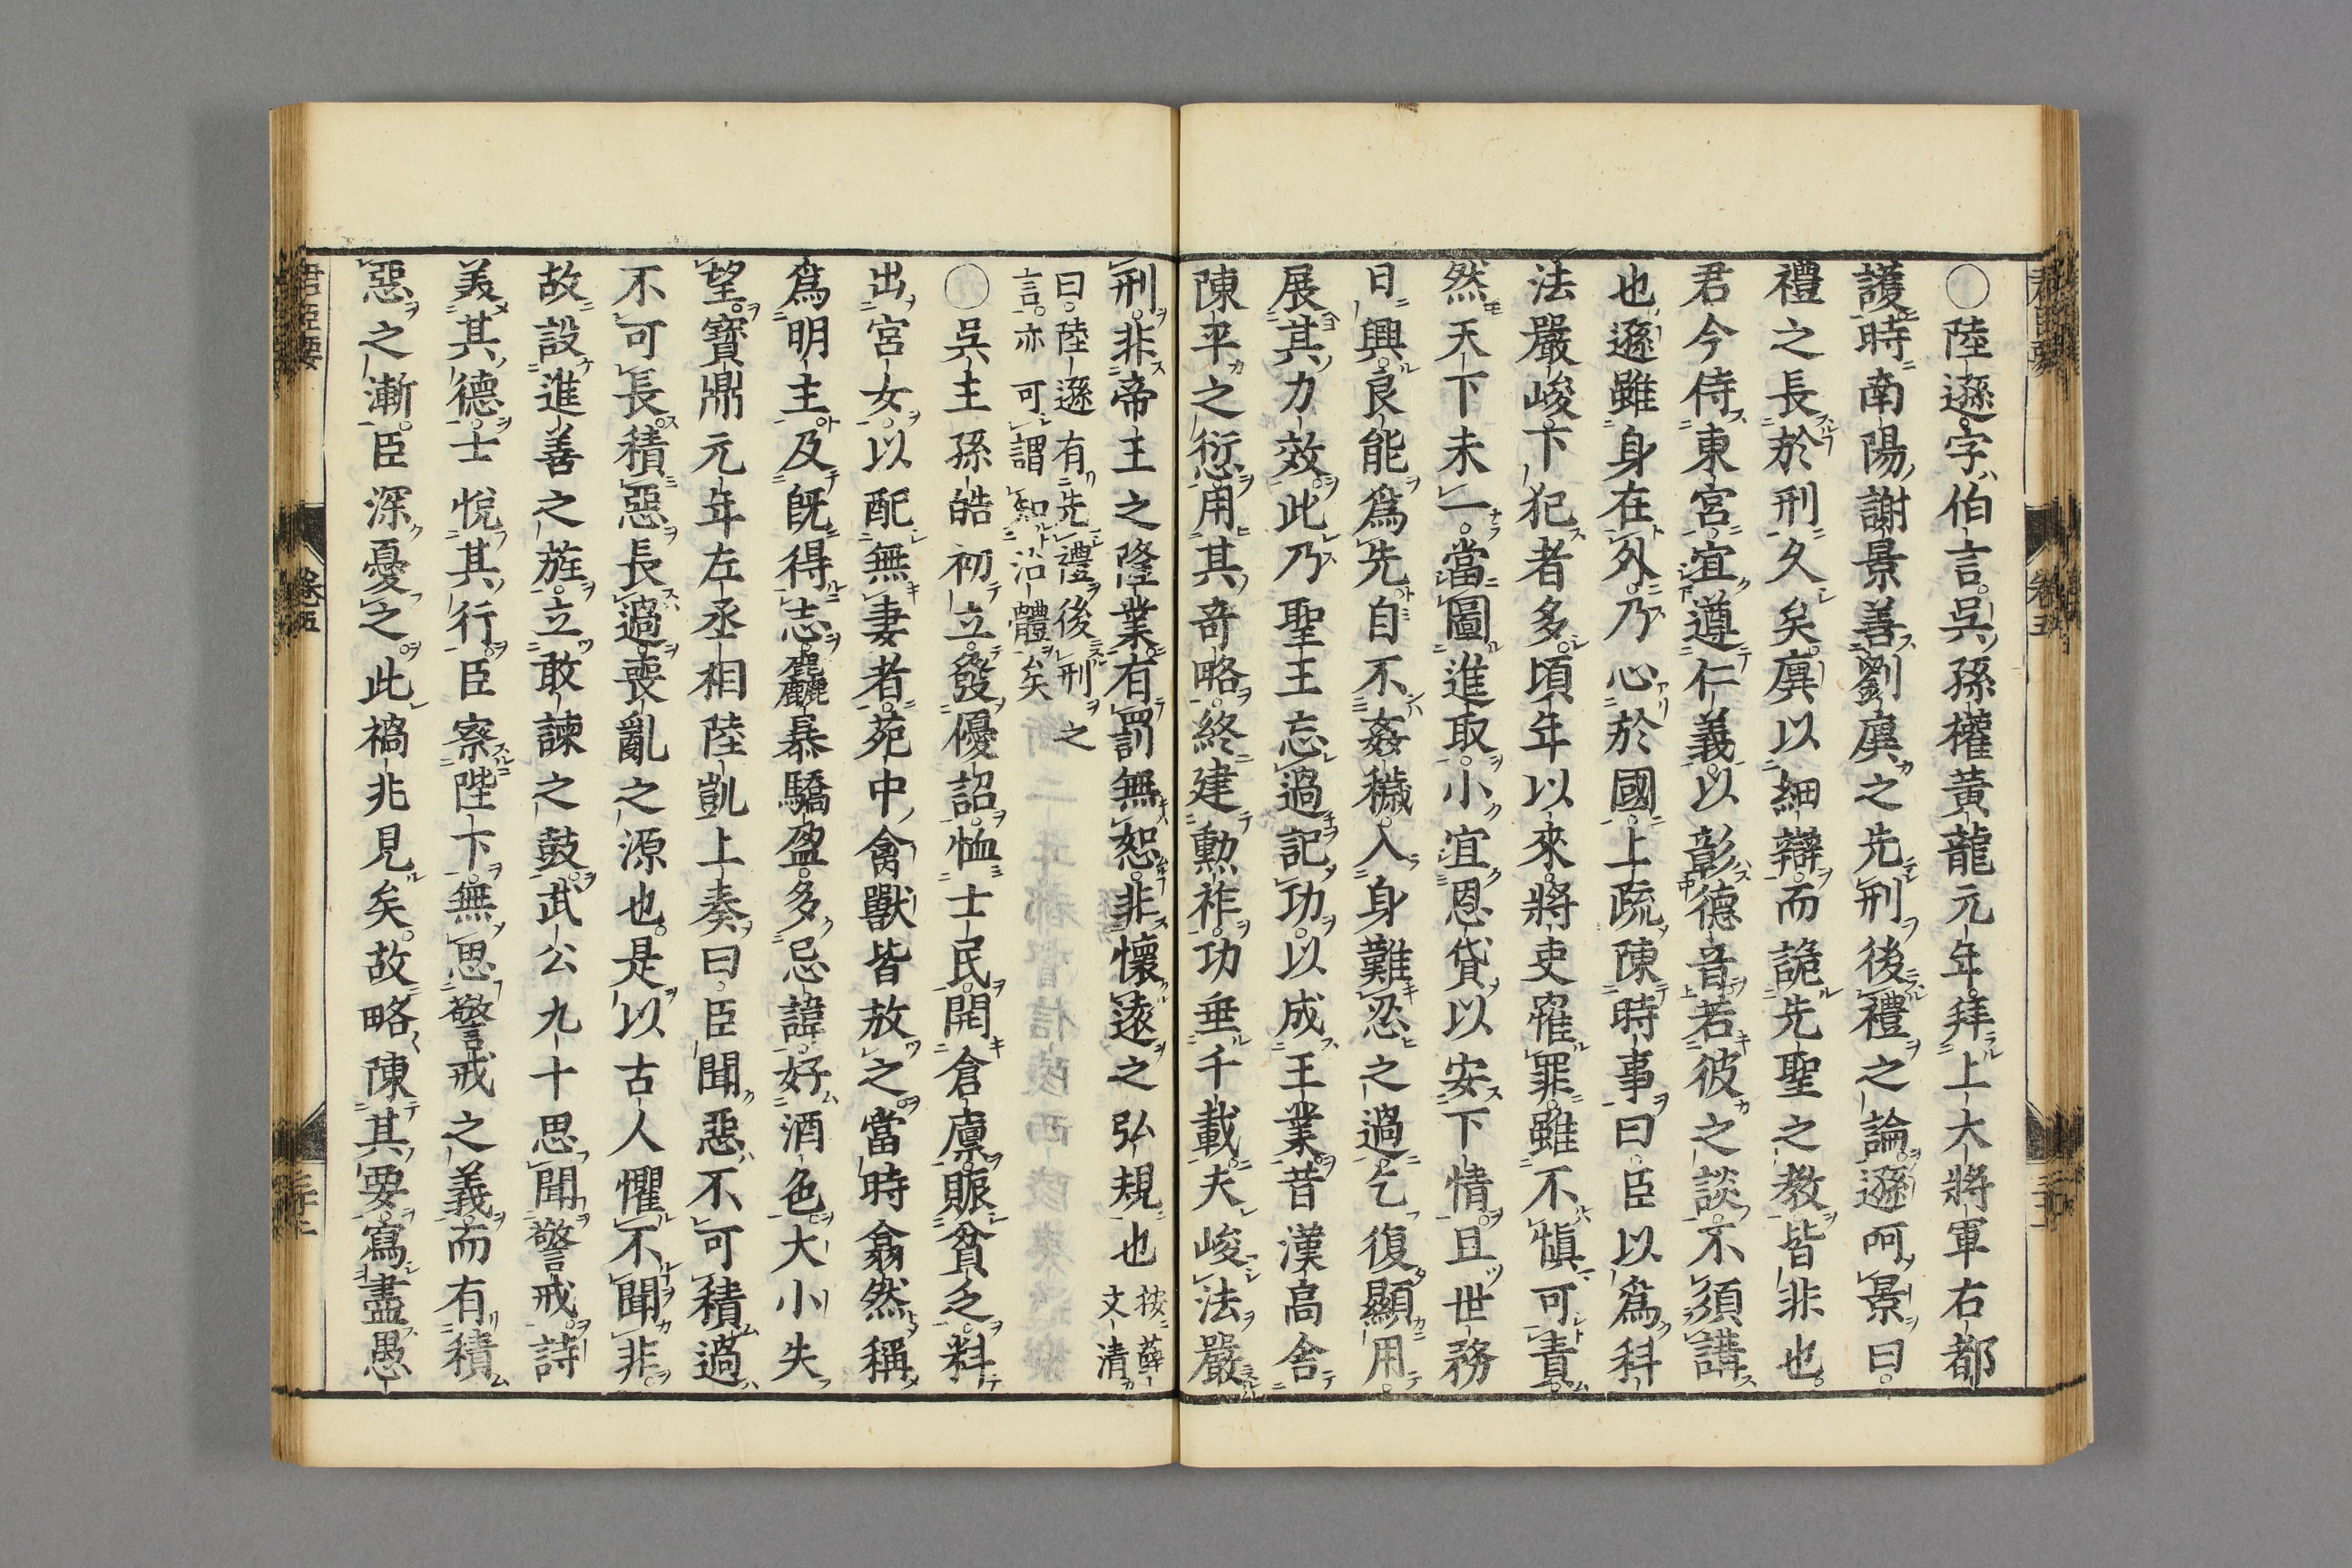 〇陸遜字伯言吳孫權黃龍元年拜上大將軍右都
護時南陽謝景善劉廙之先刑後禮之論遜呵景曰
禮之長於刑久矣廙以細辯而詭先聖之教皆非也
君今侍東宮宜遵仁義以彰德音若彼之談不須講
也遜雖身在外乃心於國上疏陳時事曰臣以爲科
法嚴峻下犯者多頃年以來將吏罹罪雖不愼可責
然天下未一當圖進取小宜恩貸以安下情且世務
日興良能爲先自不姦穢入身難忍之過乞復顯用
展其力效此乃聖王忘過記功以成王業昔漢高舍
陳平之愆用其奇略終建勳祚功垂千載夫峻法嚴
刑非帝王之隆業有罰無恕非懷遠之弘規也 按薛
文清
曰陸遜有先禮後刑之
言亦可謂知治體矣
〇吳主孫皓初立發優詔恤士民開倉廩賑貧乏料
出宮女以配無妻者苑中禽獸皆放之當時翕然稱
爲明主及旣得志麤暴驕盈多忌諱好酒色大小失
望寶鼎元年左丞相陸凱上奏曰臣聞惡不可積過
不可長積惡長過喪亂之源也是以古人懼不聞非
故設進善之旌立敢諫之鼓武公九十思聞警戒詩
美其德士悅其行臣察陛下無思警戒之義而有積
惡之漸臣深憂之此禍兆見矣故略陳其要寫盡愚
君臣要
卷五